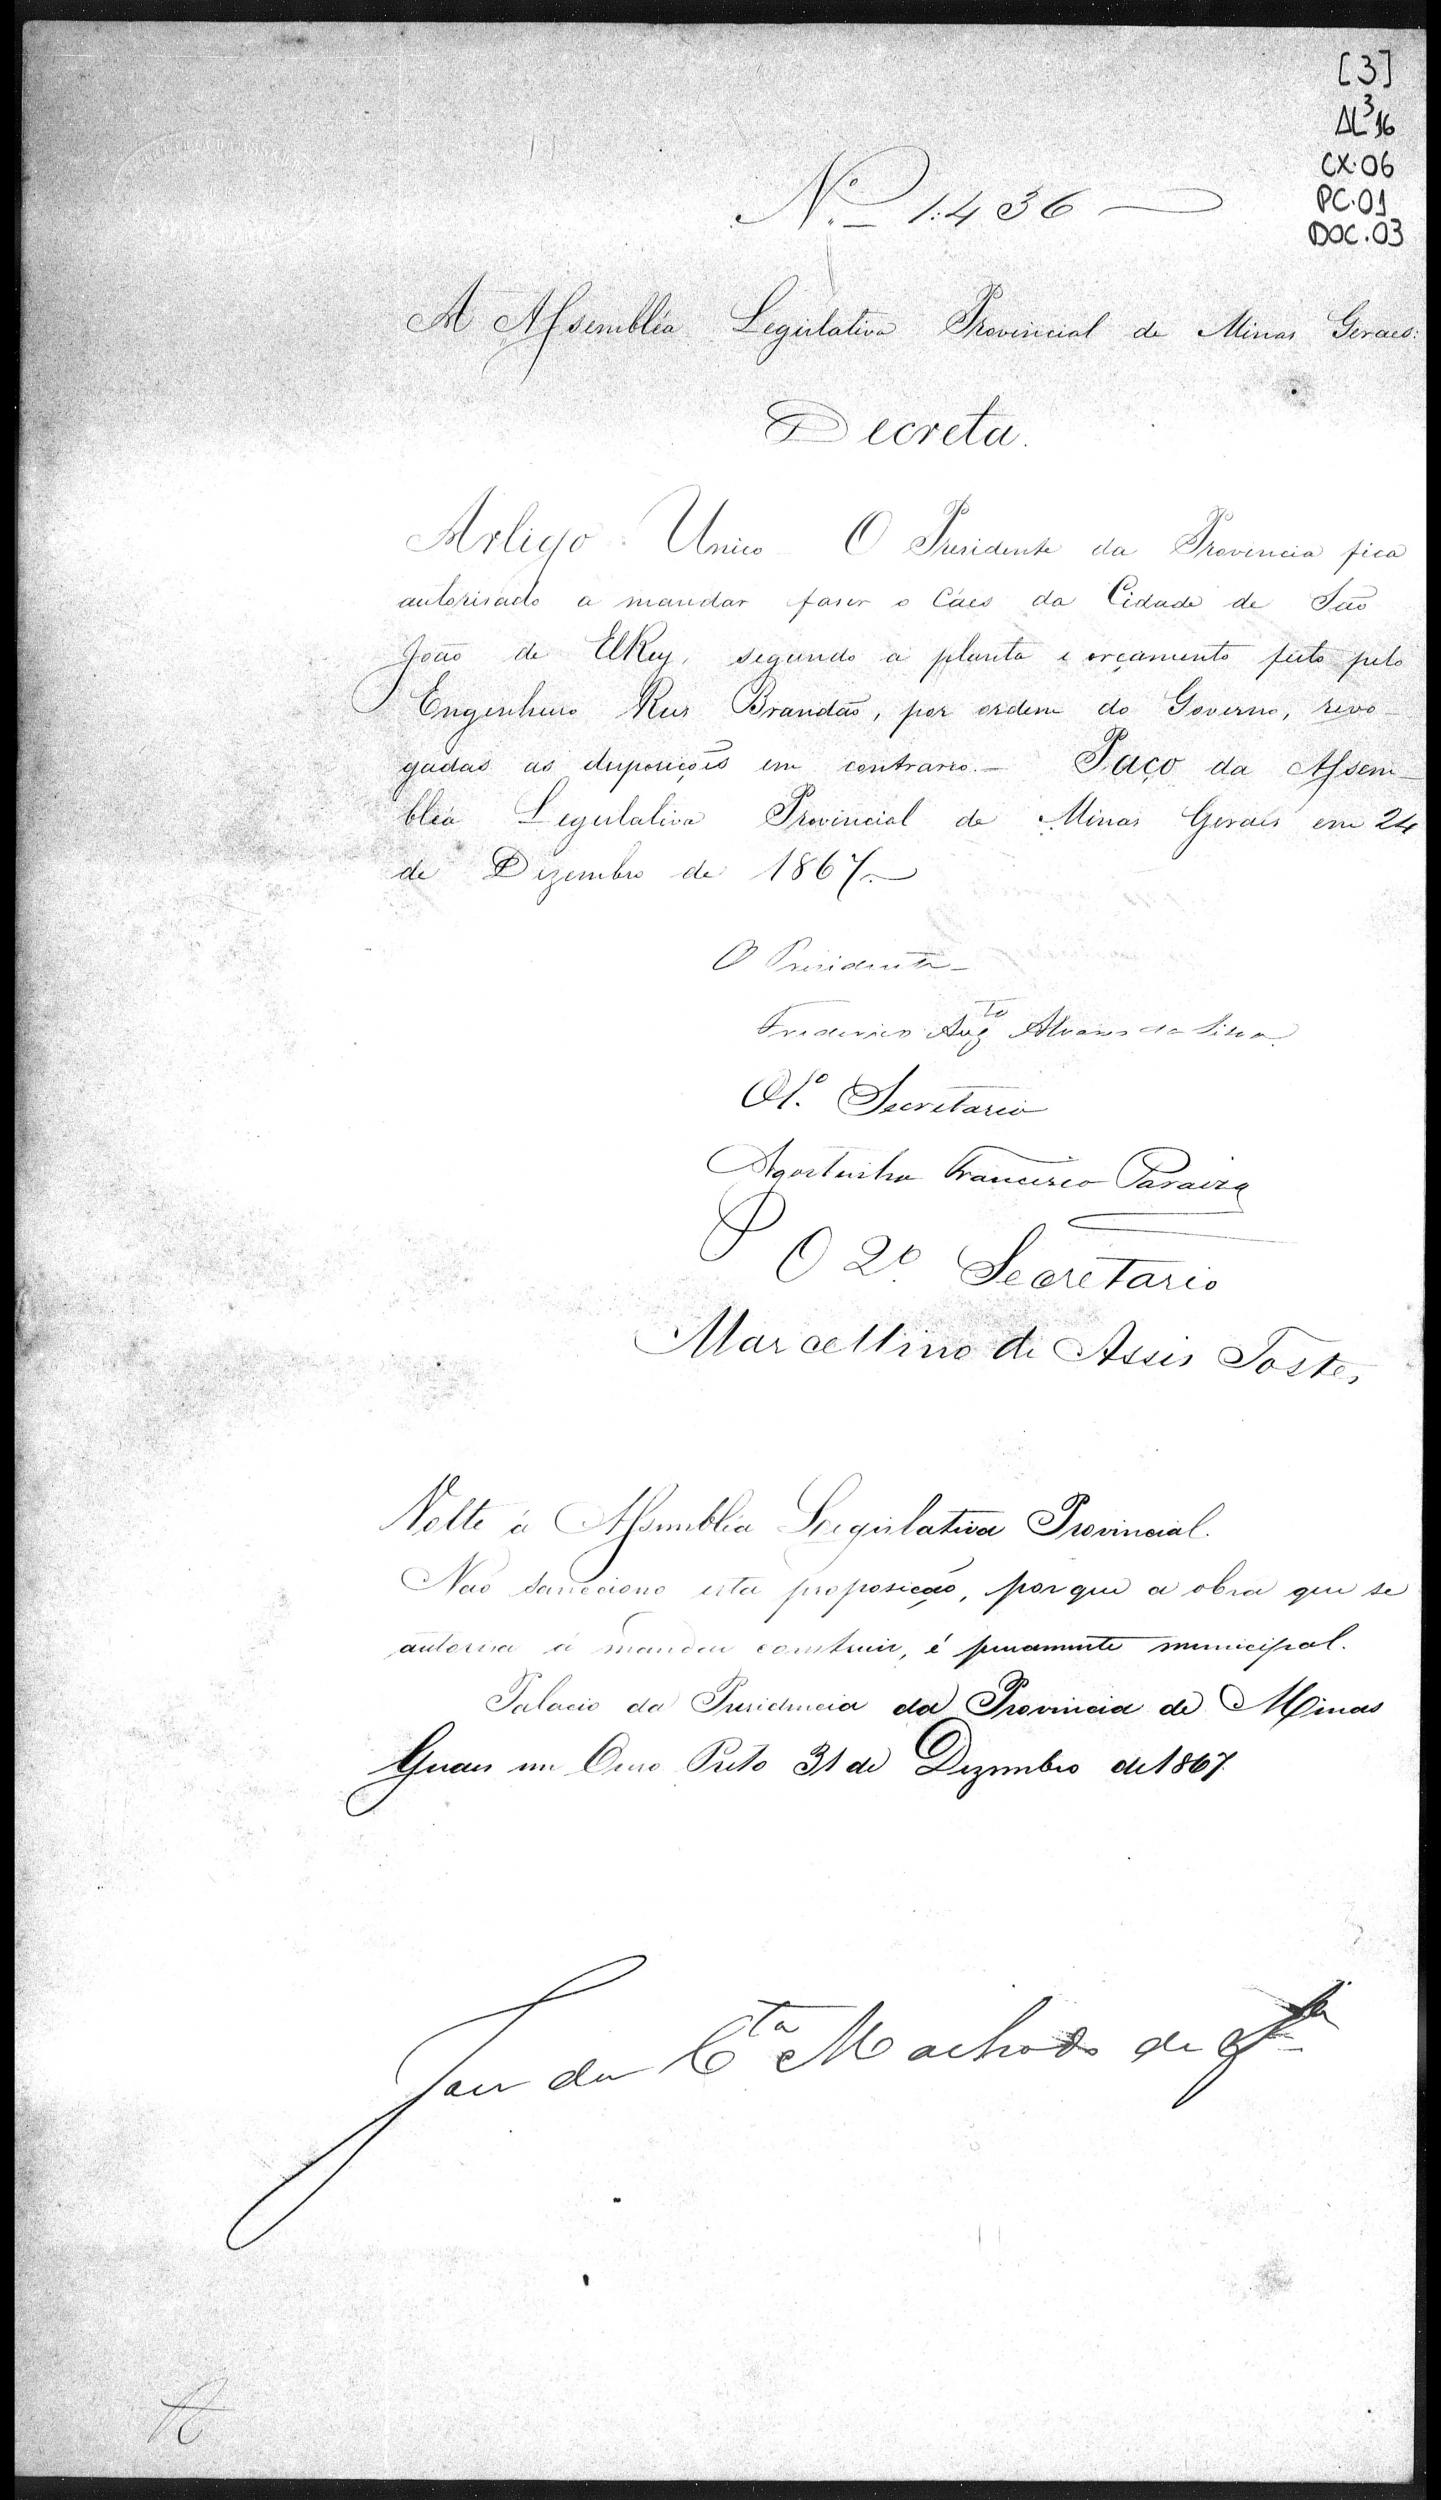 [3]
AL³16
CX.06
PC.01
DOC.03
Nº 1:436
A Assembléa Legislativa Provincial de Minas Geraes:
Decreta.
Artigo Unico O Presidente da Provincia fica
autorisado a mandar faser o Cáes da Cidade de São
João de ElRey, segundo a planta e orçamento feito pelo
Engenheiro Reis Brandão, por ordem do Governo, revo-
gadas as disposições em contrario.- Paço da Assem-
bléa Legislativa Provincial de Minas Geraes em 24
de Dizembro de 1867.
O Presidente
Frederico Aug.to Alvares da Silva.
O 1.º Secretario
Agostinho Francisco Paraizo
O 2º Secretario
Marcellino de Assis Tostes
Volte á Assembléa Legislativa Provincial.
Não sancciono esta proposição, porque a obra que se
autorisa á mandar construir, é puramente municipal.
Palacio da Presidencia da Provincia de Minas
Geraes em Ouro Preto 31 de Dezembro de 1867.
José da C.ta Machado de